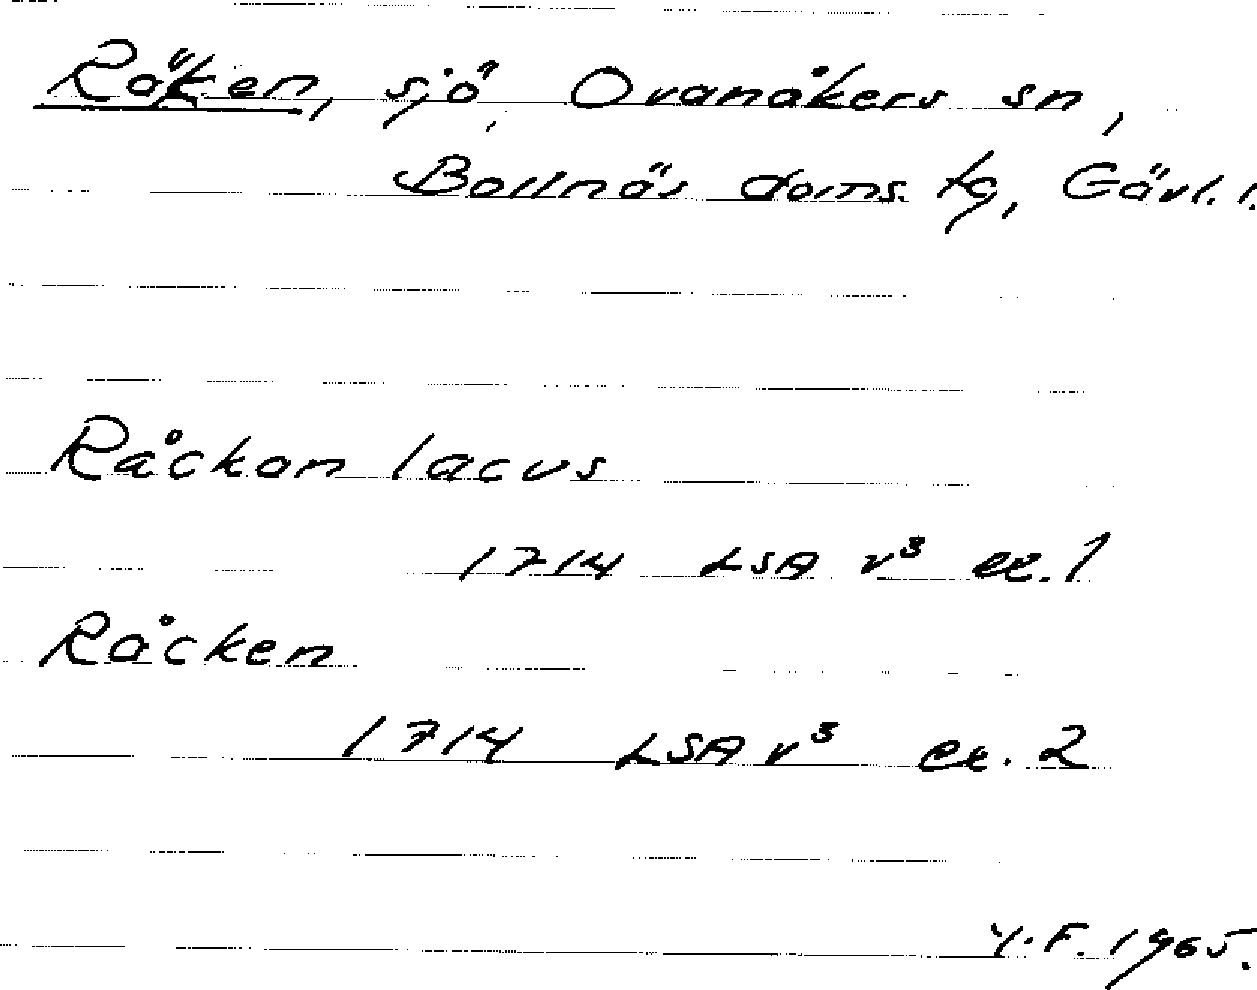 Räken, sjö, Ovanåkers sn,
Bollnäs doms. tg, Gävl. l.
Råckan lacus
1714 LSA v³ ex. 1
Råcken
1714 LSA v³ ex. 2
Y.F. 1965.